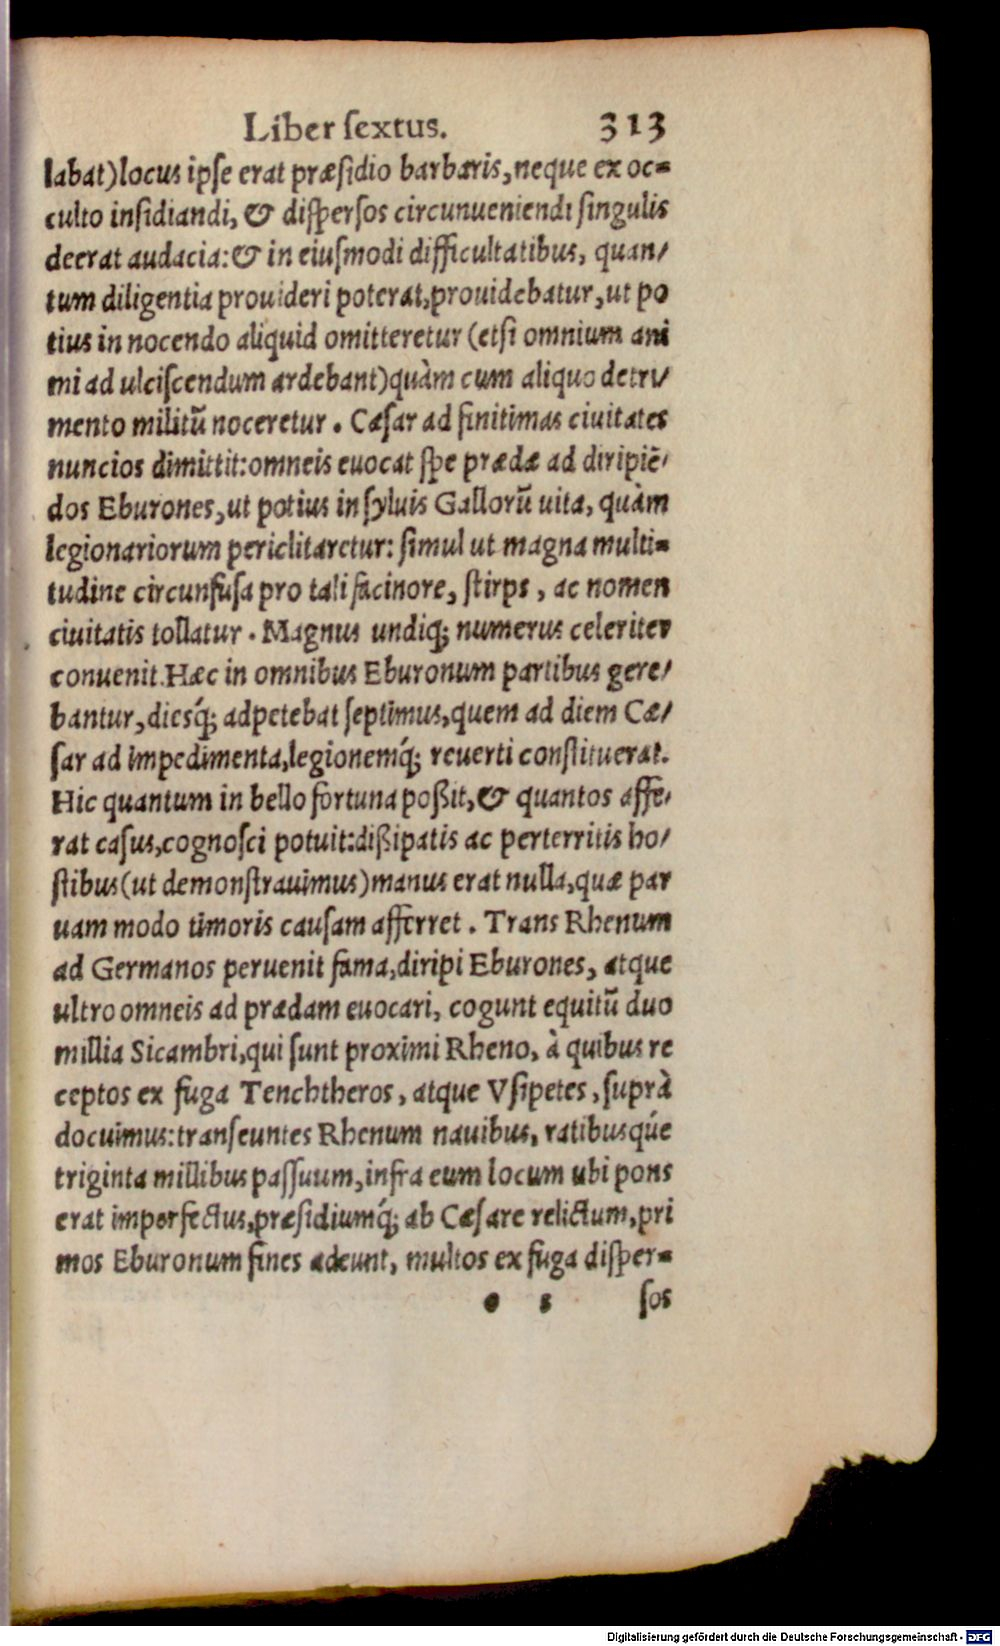 Liber ſextus. 313
labat)locus ipſe erat præſidio barbaris,neque ex oc=
culto inſidiandi, & diſperſos circunueniendi ſingulis
deerat audacia:& in eiuſmodi difficultatibus, quan/
tum diligentia prouideri poterat,prouidebatur,ut po
tius in nocendo aliquid omitteretur (etſi omnium ani
mi ad ulciſcendum ardebant)quàm cum aliquo detri/
mento militū noceretur. Cæſar ad finitimas ciuitates
nuncios dimittit:omneis euocat ſpe prædæ ad diripiē/
dos Eburones,ut potius in ſyluis Gallorū uita, quàm
legionariorum periclitaretur: ſimul ut magna multi=
tudine circunfuſa pro tali facinore, ſtirps, ac nomen
ciuitatis tollatur. Magnus undiq; numerus celeriter
conuenit.Hæc in omnibus Eburonum partibus gere/
bantur,diesq́; adpetebat ſeptimus,quem ad diem Cæ/
ſar ad impedimenta,legionemq́; reuerti conſtituerat.
Hic quantum in bello fortuna poßit,& quantos affe/
rat caſus,cognoſci potuit:dißipatis ac perterritis ho/
ſtibus(ut demonſtrauimus)manus erat nulla,quæ par
uam modo timoris cauſam afferret. Trans Rhenum
ad Germanos peruenit fama,diripi Eburones, atque
ultro omneis ad prædam euocari, cogunt equitū duo
millia Sicambri,qui ſunt proximi Rheno, à quibus re
ceptos ex fuga Tenchtheros, atque Vſipetes, ſuprà
docuimus:tranſeuntes Rhenum nauibus, ratibusqúe
triginta millibus paſſuum,infra eum locum ubi pons
erat imperfectus,præſidiumq́; ab Cæſare relictum,pri
mos Eburonum fines adeunt, multos ex fuga diſper=
ſos
Digitalisierung gefördert durch die Deutsche Forschungsgemeinschaft - DFG